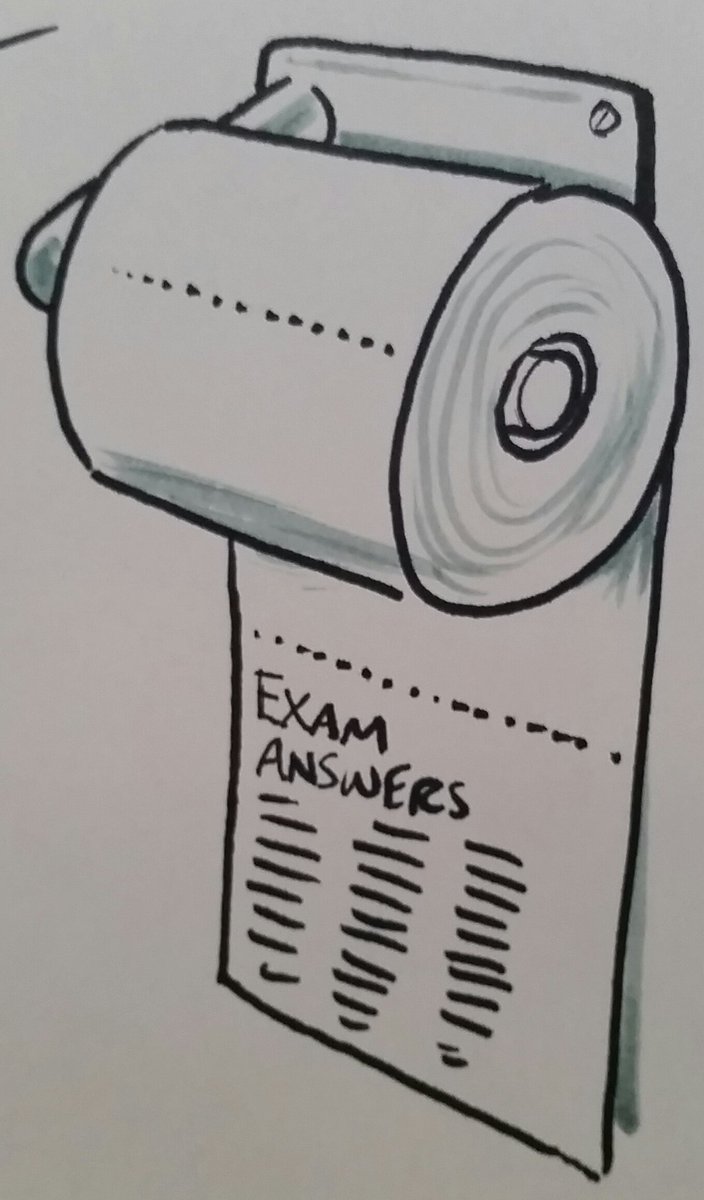 EXAM
ANSWERS